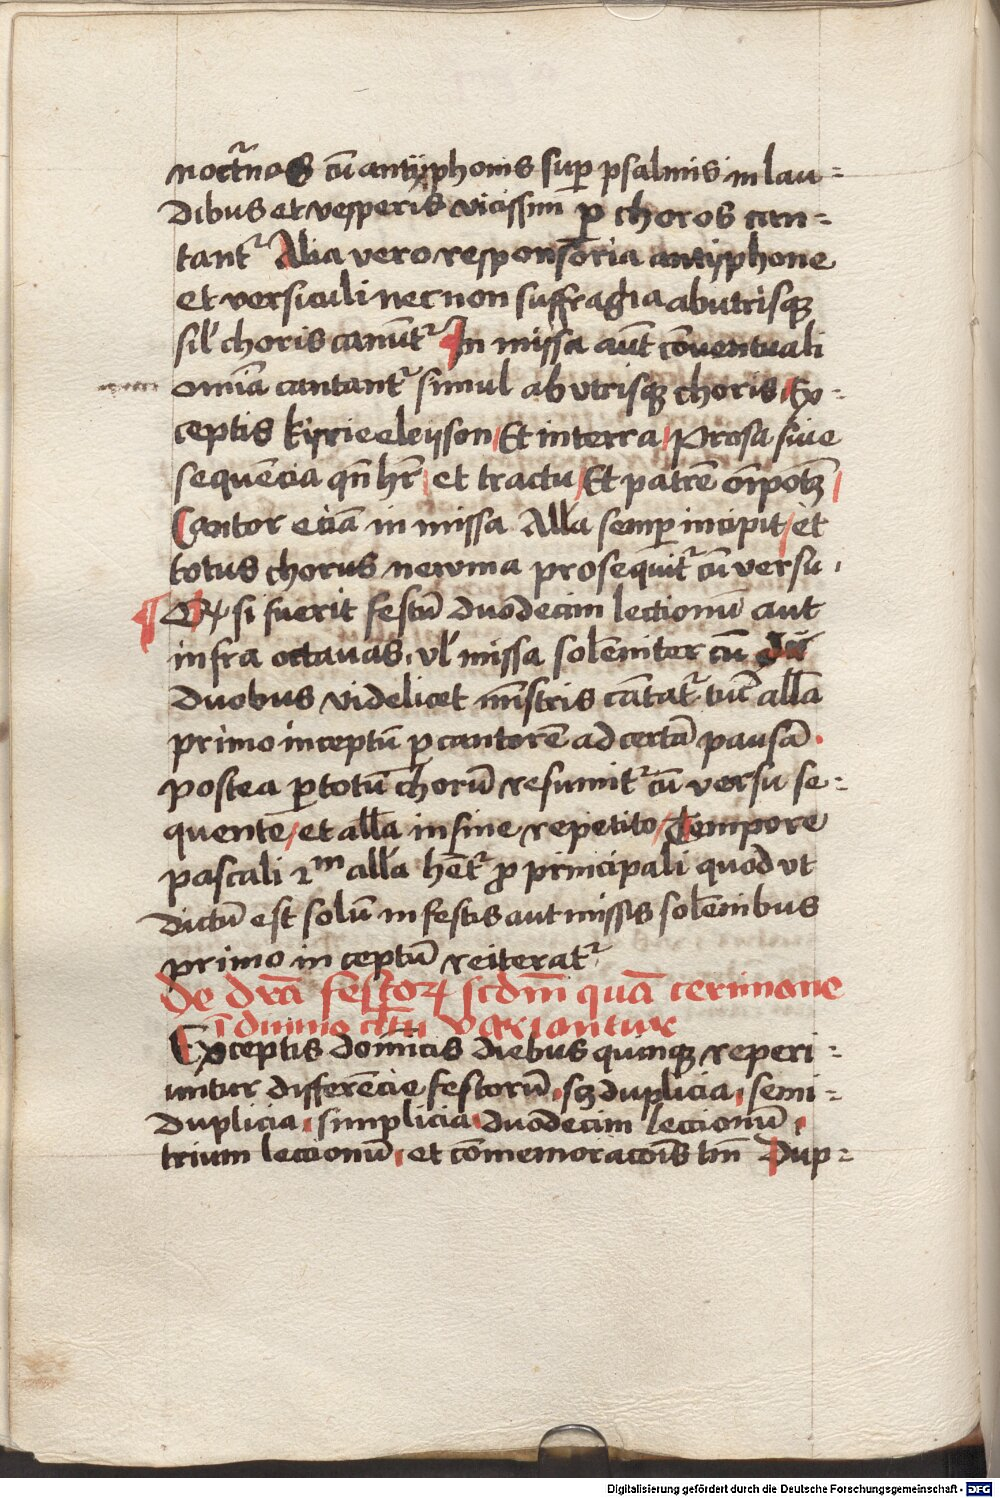 noct̃nos cū antiyphonis sup̱ psalmis in lau=
dibus et vesperis vicissim ꝑ choros can=
tantᷣ Alia vero responsoria antiyphone
et versiculi necnon suffragia ab utrisqꝫ
sil̛ choris canūtᷣ In missa aūt cōuentuali
om̄ia cantantᷣ simul ab vtrisqꝫ choris Ex=
ceptis kyrieeleyson Et in terra Prosa siue
sequēcia qn̄ hr̄ et tractu Et patrē om̄potē
Cantor eciā in missa All̄a semꝑ incipit et
totus chorus neruma prosequitᷣ cū versu
Qꝛ si fuerit festū duodecim lectionū aut
infra octauas vl̛ missa solēniter cū
duobus videlicet mīstris cātatᷣ tūc all̄a
primo inceptū ꝑ cantorē ad certā pausā
postea ꝑ totū chorū resumitᷣ cū versu se=
quente et all̄a in fine repetito Tempore
pascali 2m all̄a hētᷣ ꝓ principali quod vt
dictū est solū in festis aut missis solēnibus
primo inceptū reiteratᷣ
de dr̄ā festoꝝ scdm̄ quā cerimonie
ī diuino cltu variantur
Exceptis domīcis diebus quinqꝫ reperi=
untur differēcie festorū sꝫ duplicia semi=
duplicia simplicia duodecim leccionū
trium leccionū et cōmemoracōis tm̄ Dup=
Digitalisierung gefördert durch die Deutsche Forschungsgemeinschaft - DFG